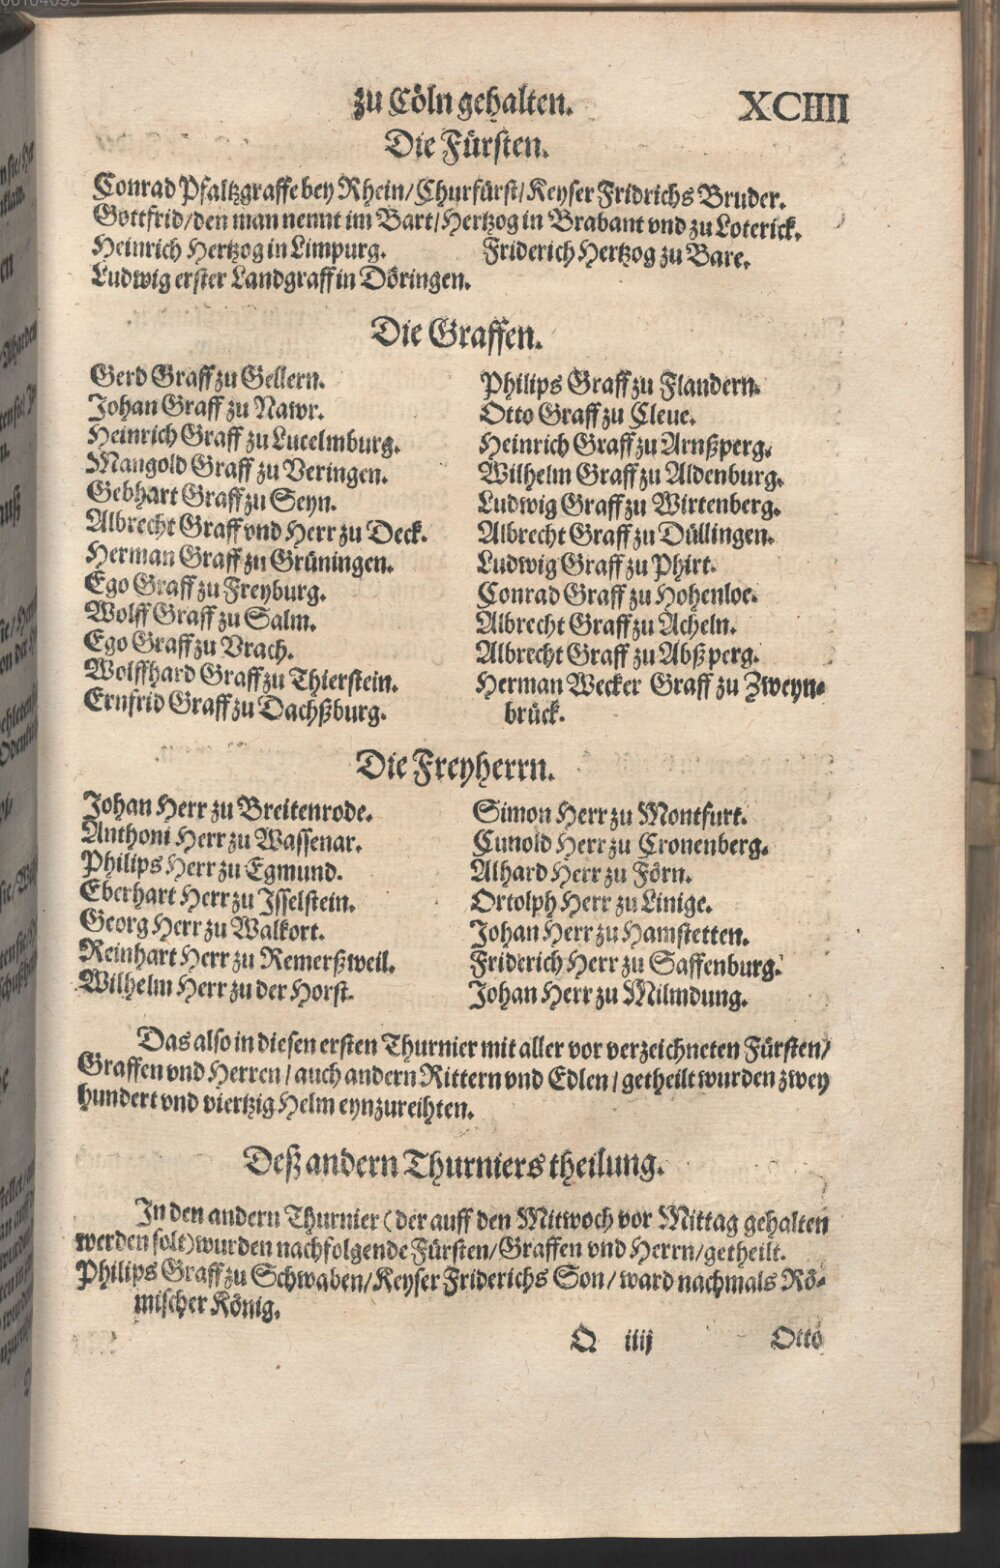 zu Cöln gehalten. XCIIII
Die Fürsten.
Conrad Pfaltzgraffe bey Rhein/Churfürst/Keyser Fridrichs Bruder.
Gottfrid/den man nennt im Bart/Hertzog in Brabant vnd zu Loterick.
Heinrich Hertzog in Limpurg. Friderich Hertzog zu Bare.
Ludwig erster Landgraff in Döringen.
Die Graffen.
Gerd Graff zu Gellern.
Johan Graff zu Nawr.
Heinrich Graff zu Lucelmburg.
Mangold Graff zu Veringen.
Gebhart Graff zu Seyn.
Albrecht Graff vnd Herr zu Deck.
Herman Graff zu Grüningen.
Ego Graff zu Freyburg.
Wolff Graff zu Salm.
Ego Graff zu Vrach.
Wolffhard Graff zu Thierstein.
Ernfrid Graff zu Dachßburg.
Philips Graff zu Flandern.
Otto Graff zu Cleue.
Heinrich Graff zu Arnßperg.
Wilhelm Graff zu Aldenburg.
Ludwig Graff zu Wirtenberg.
Albrecht Graff zu Düllingen.
Ludwig Graff zu Phirt.
Conrad Graff zu Hohenloe.
Albrecht Graff zu Acheln.
Albrecht Graff zu Abßperg.
Herman Wecker Graff zu Zweyn-
brück.
Die Freyherrn.
Johan Herr zu Breitenrode.
Anthoni Herr zu Wassenar.
Philips Herr zu Egmund.
Eberhart Herr zu Isselstein.
Georg Herr zu Walkort.
Reinhart Herr zu Remerßweil.
Wilhelm Herr zu der Horst.
Simon Herr zu Montfurt.
Cunold Herr zu Cronenberg.
Alhard Herr zu Förn.
Ortolph Herr zu Linige.
Johan Herr zu Hamstetten.
Friderich Herr zu Saffenburg.
Johan Herr zu Milmdung.
Das also in diesen ersten Thurnier mit aller vor verzeichneten Fürsten/
Graffen vnd Herren/auch andern Rittern vnd Edlen/getheilt wurden zwey
hundert vnd viertzig Helm eynzureihten.
Deß andern Thurniers theilung.
In den andern Thurnier (der auff den Mitwoch vor Mittag gehalten
werden solt) wurden nachfolgende Fürsten/Graffen vnd Herrn/getheilt.
Philips Graff zu Schwaben/Keyser Friderichs Son/ward nachmals Rö-
mischer König.
Q iiij Otto